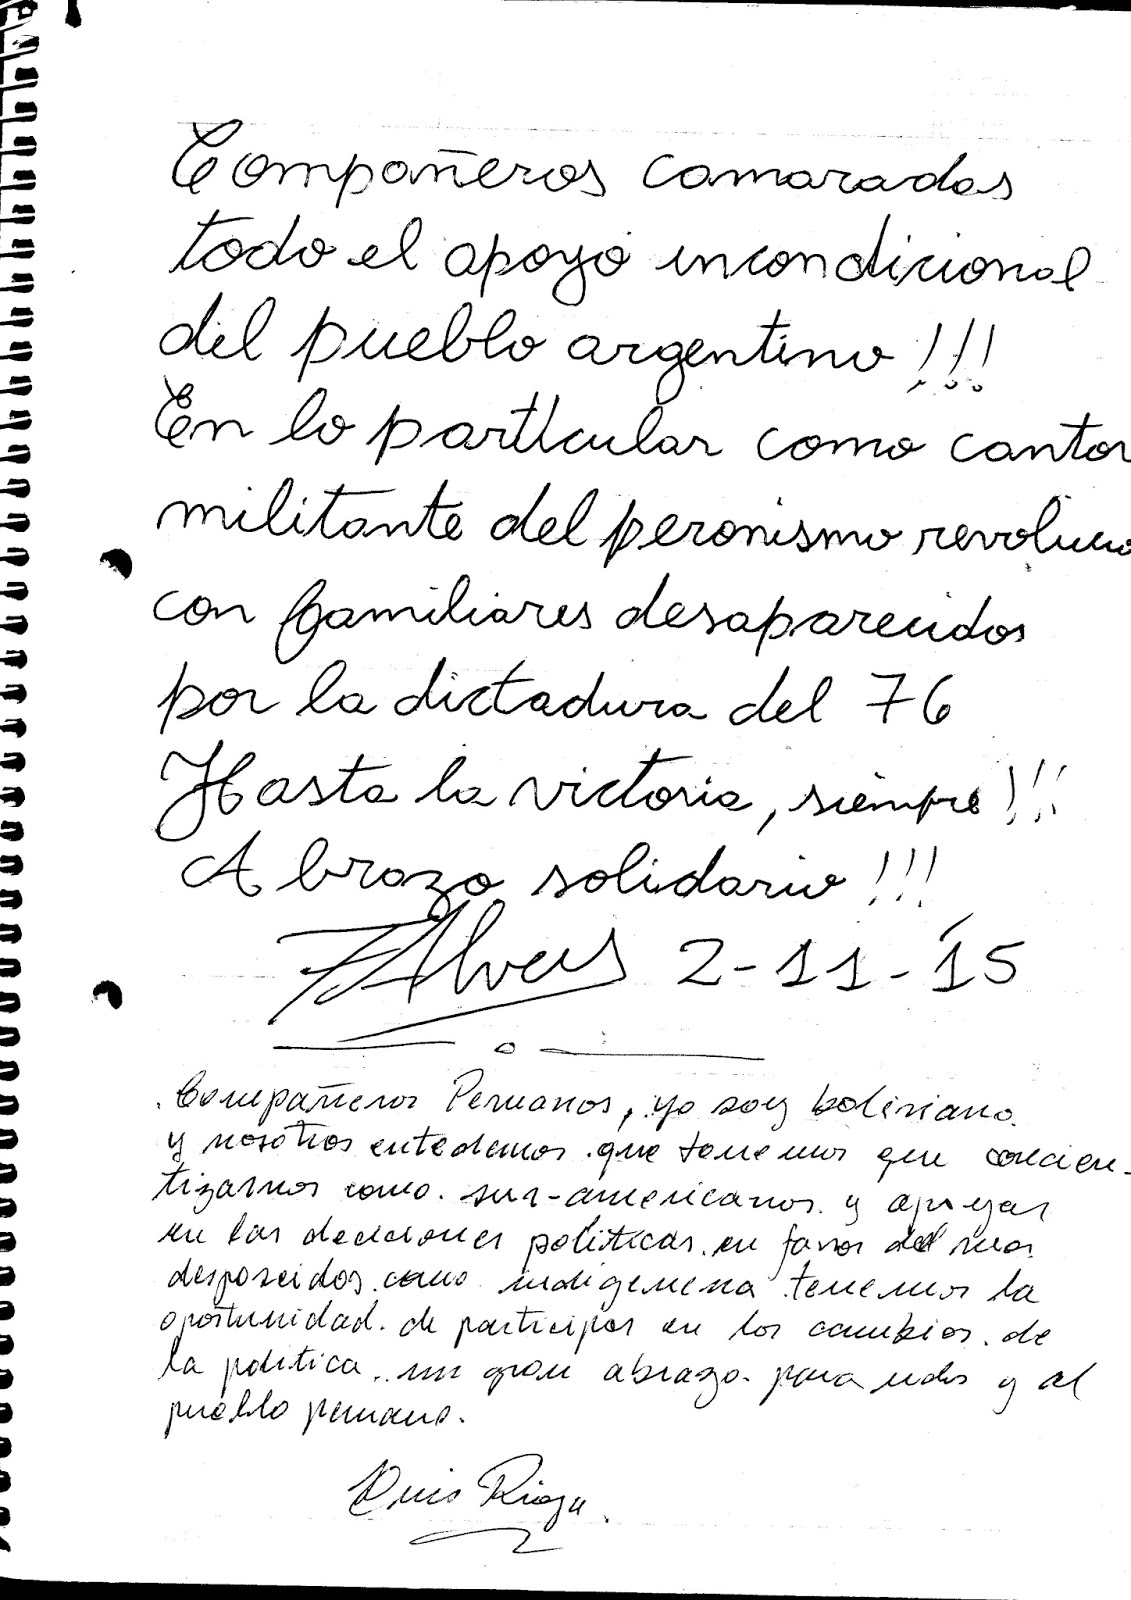 Compañeros camaradas
todo el apoyo incondicional
del pueblo argentino!!!
En lo particular como cantor
militante del peronismo revolucio
con familiares desaparecidos
por la dictadura del 76
Hasta la victoria, siempre!!!
Abrazo solidario!!!
2-11-15
Compañeros Peruanos, yo soy boliviano.
y nosotros entedemos que tenemos que concien-
tizarnos como sur-americanos y apoyar
en las deciciones politicas en favor del
desposeidos como indigenena tenemos la
oportunidad de participar en los cambios de
la politica. un gran abrazo para udes y al
pueblo peruano.
Luis